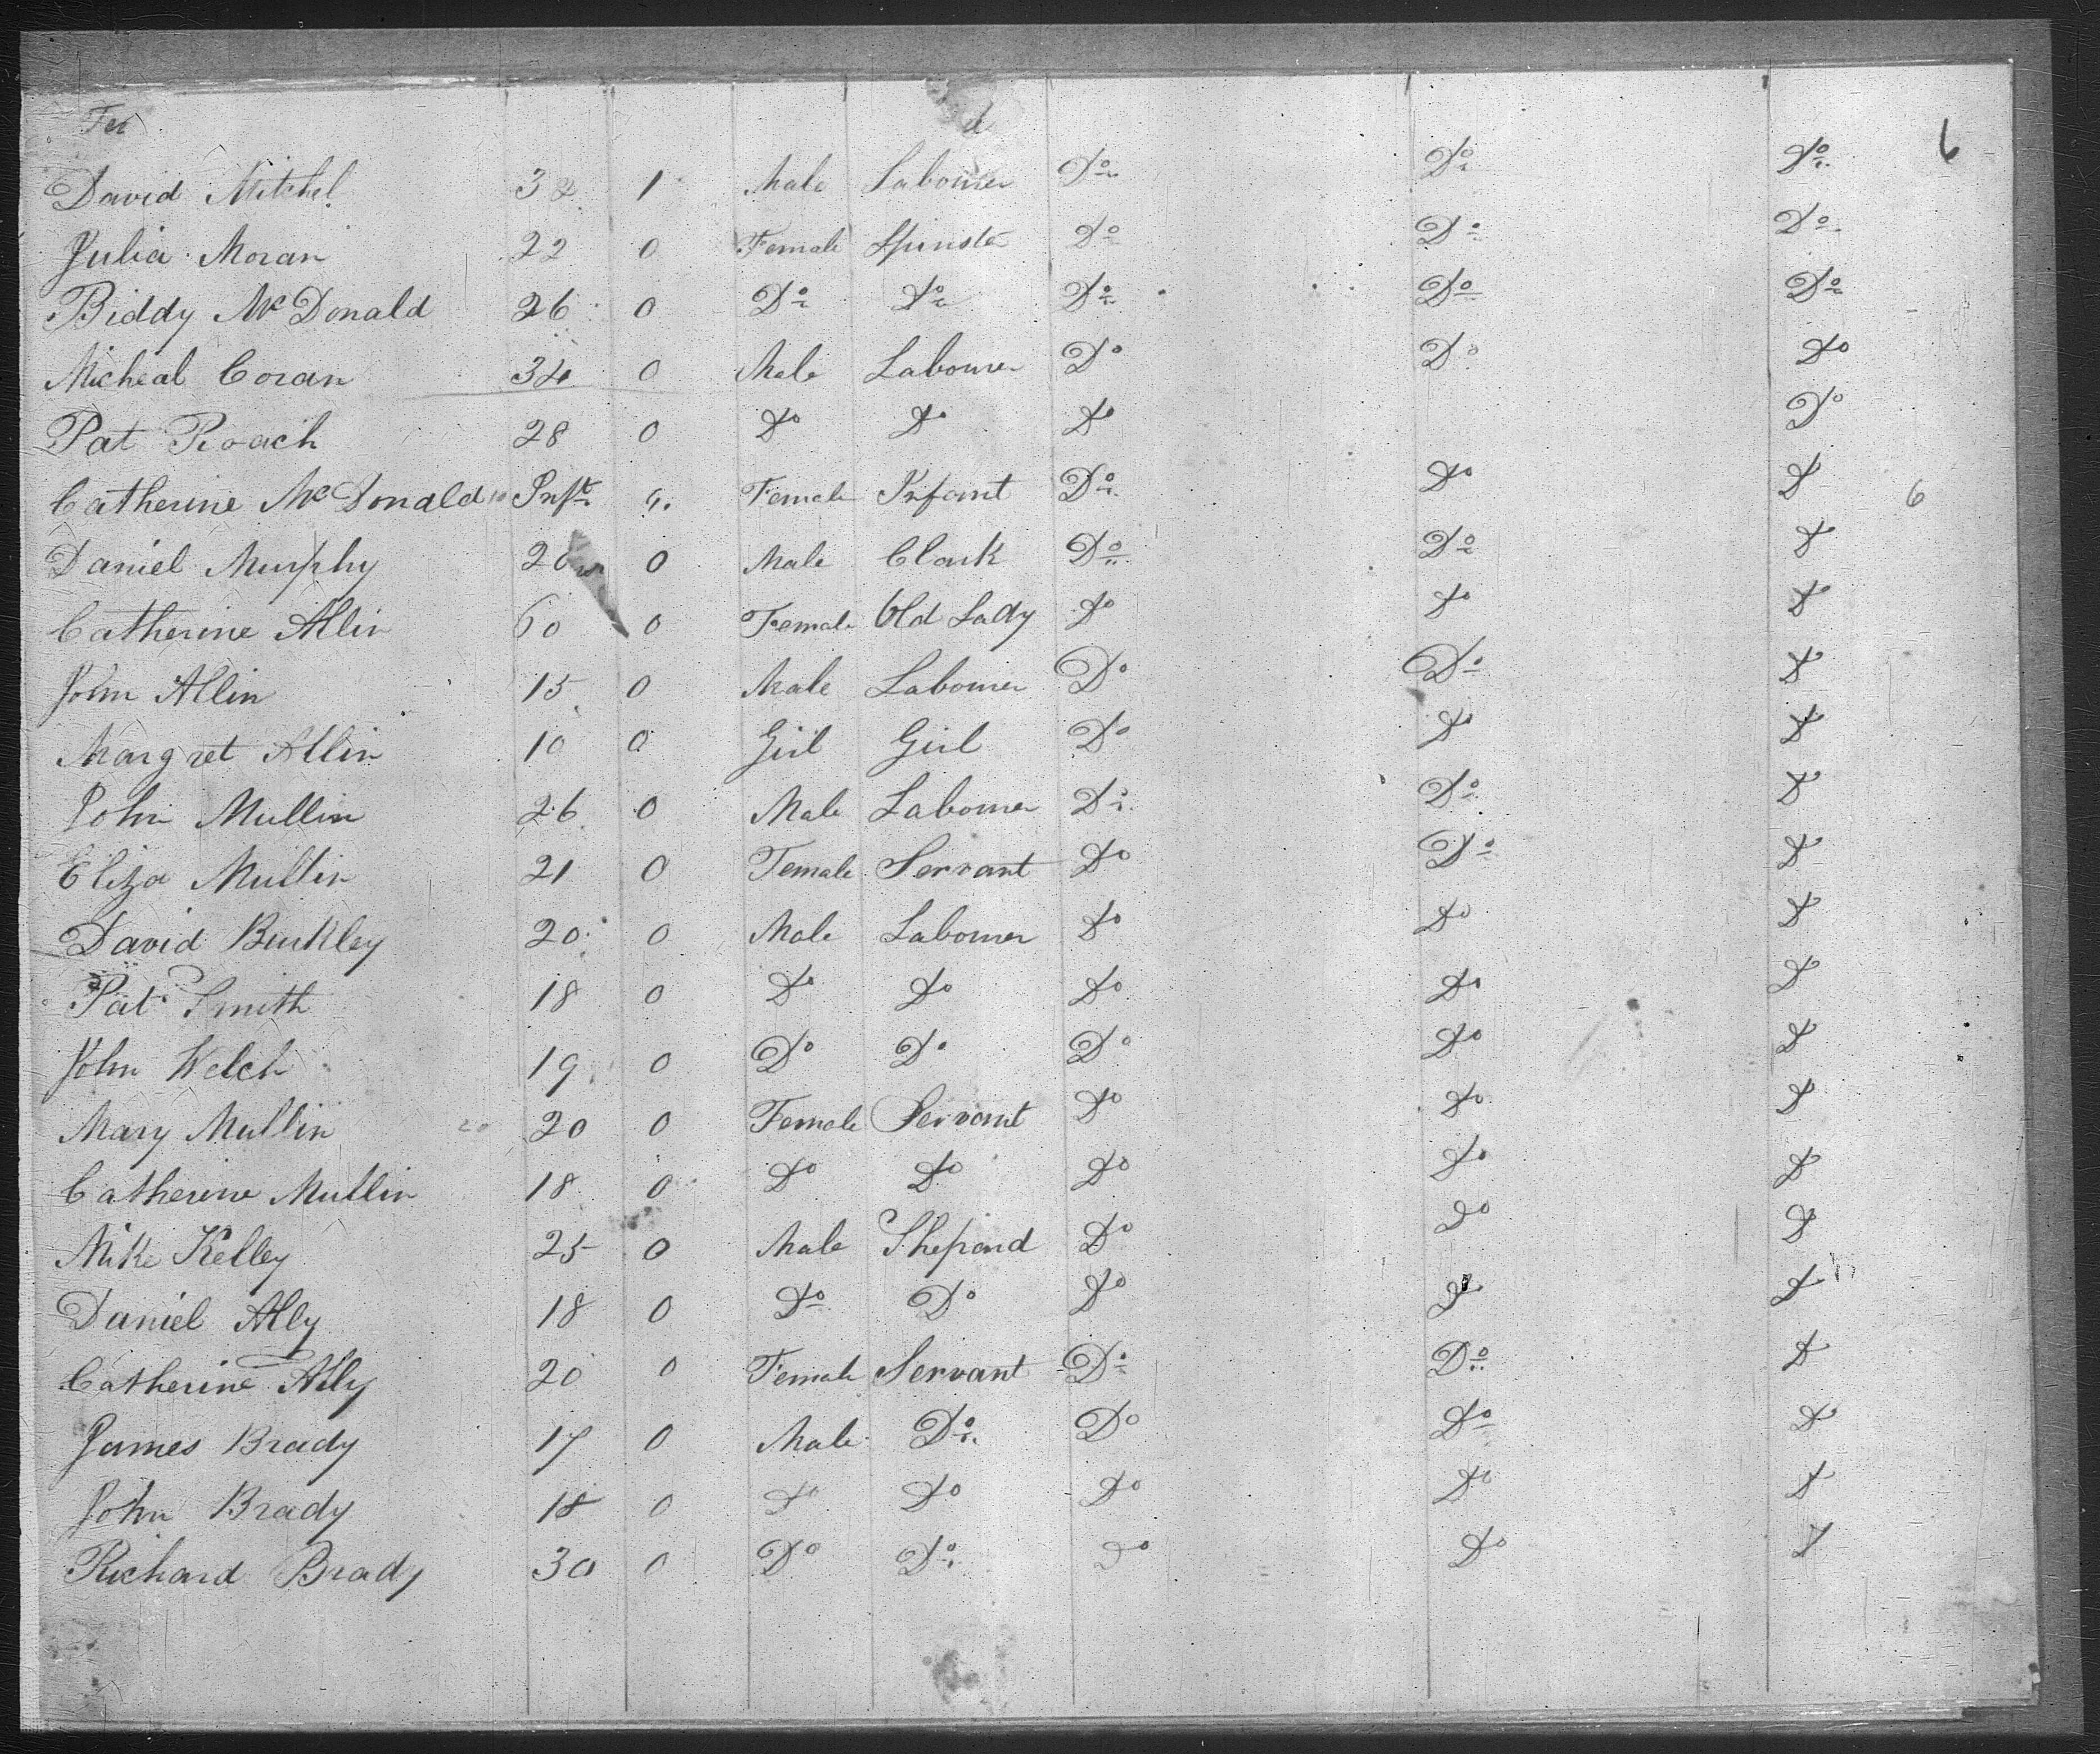 6
David Mitchel 32 1 Male Labourer Do Do Do
Julia Moran 22 0 Female Spinster Do Do Do
Biddy McDonald 26 0 Do Do Do Do Do
Micheal Coran 34 0 Male Labourer Do Do Do
Pat Roach 28 0 Do Do Do Do
Catherine McDonald Inft 4 Female Infant Do Do D 6
Daniel Murphy 20 0 Male Clark Do Do D
Catherine Allin 60 0 Female Old Lady Do Do D
John Allin 15 0 Male Labourer Do Do D
Margret Allin 10 0 Girl Girl Do Do D
John Mullin 26 0 Male Labourer Do Do D
Eliza Mullin 21 0 Female Servant Do Do D
David Burkley 20 0 Male Labourer Do Do D
Pat Smith 18 0 Do Do Do Do D
John Welch 19 0 Do Do Do Do D
Mary Mullin 20 20 0 Female Servant Do Do D
Catherine Mullin 18 0 Do Do Do Do D
Mike Kelley 25 0 Male Shepard Do Do D
Daniel Ally 18 0 Do Do Do D D
Catherine Ally 20 0 Female Servant Do Do D
James Brady 17 0 Male Do Do Do D
John Brady 18 0 Do Do Do Do D
Richard Brady 30 0 Do Do Do Do D